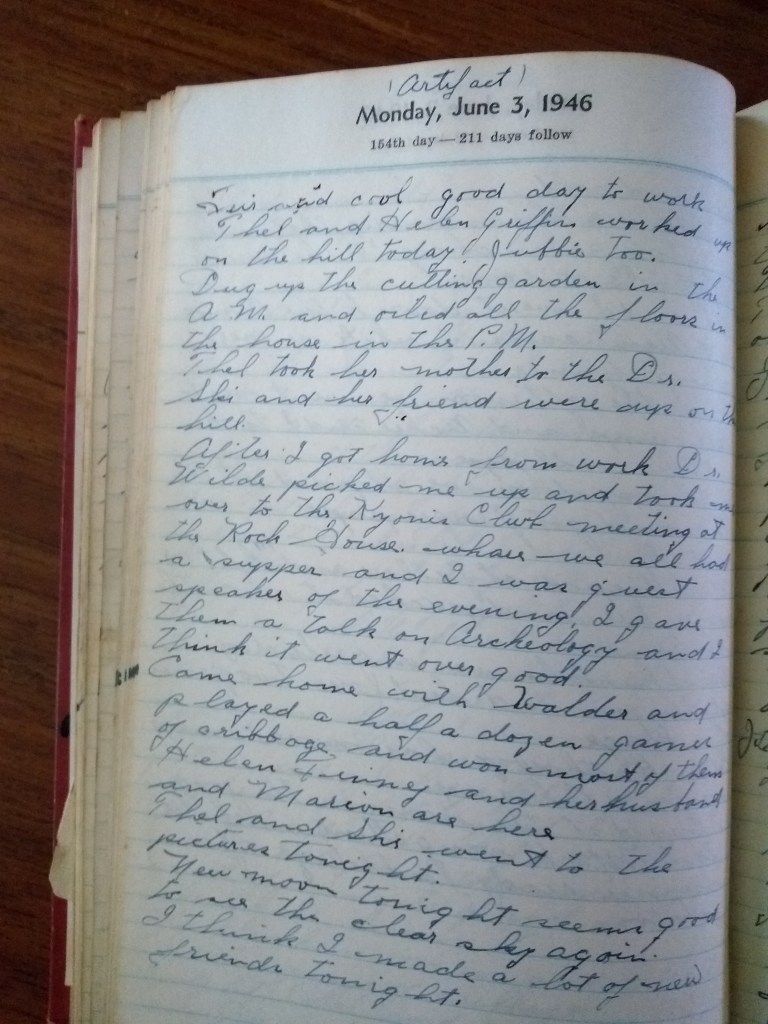 (Artifact)
Monday, June 3, 1946
154th day — 211 days follow
Fair and cool good day to work
Thel and Helen Griffin worked up
on the hill today. Jubbie too.
Dug up the cutting garden in the
A.M. and oiled all the floors in
the house in the P.M.
Thel took her mother to the Dr.
Ski and her friend were up on th
hill.
After I got home from work Dr.
Wilde picked me up and took m
over to the Kyonis Club meeting at
the Rock House. whare we all had
a supper and I was guest
speaker of the evening, I gave
them a talk on Archeology and I
think it went over good.
Came home with Walder and
played a half a dozen games
of cribbage and won most of them
Helen Finney and her husband
and Marion are here
Thel and Ski went to the
pictures tonight.
New moon tonight seems good
to see the clear sky again.
I think I made a lot of new
friends tonight.